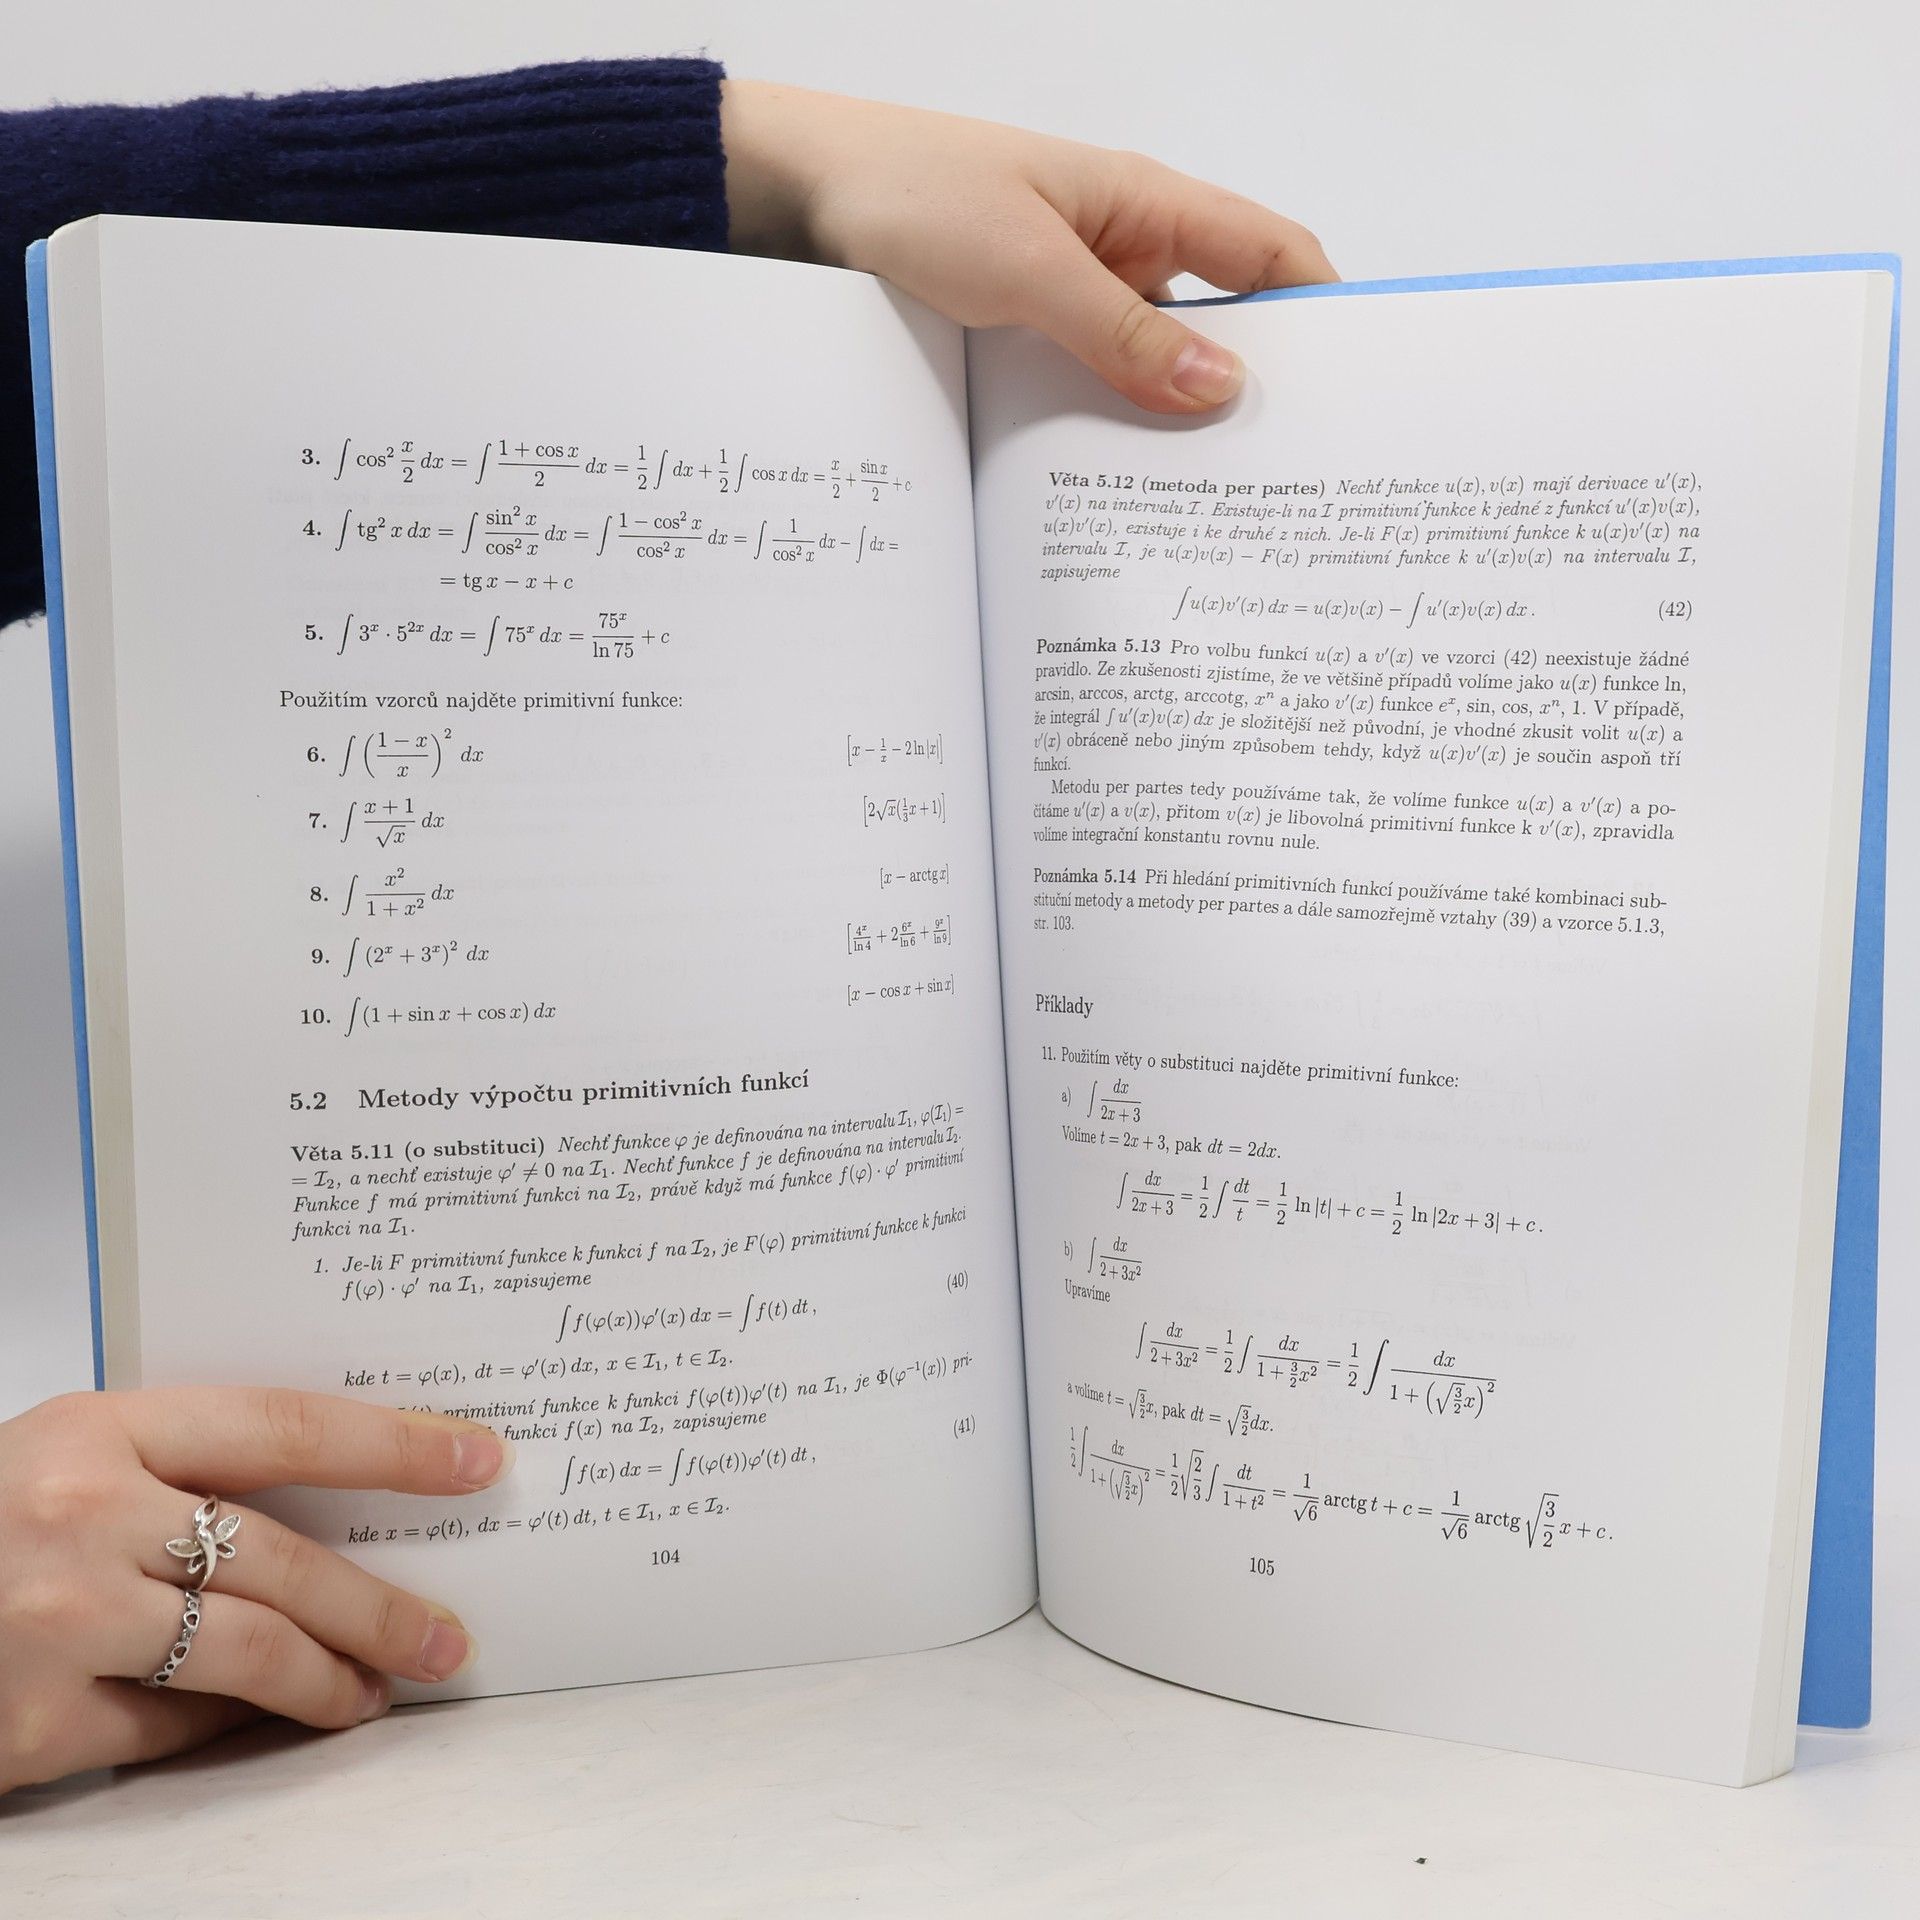 3. ∫ cos² x/2 dx = ∫ (1 + cos x)/2 dx = 1/2 ∫ dx + 1/2 ∫ cos x dx = x/2 + sin x/2 + c
4. ∫ tg² x dx = ∫ sin² x/cos² x dx = ∫ (1 − cos² x)/cos² x dx = ∫ 1/cos² x dx − ∫ dx =
= tg x − x + c
5. ∫ 3ˣ · 5²ˣ dx = ∫ 75ˣ dx = 75ˣ/ln 75 + c
Použitím vzorců najděte primitivní funkce:
6. ∫ ((1 − x)/x)² dx [x − 1/x − 2 ln |x|]
7. ∫ (x + 1)/√x dx [2√x(1/3 x + 1)]
8. ∫ x²/(1 + x²) dx [x − arctg x]
9. ∫ (2ˣ + 3ˣ)² dx [4ˣ/ln 4 + 2 6ˣ/ln 6 + 9ˣ/ln 9]
10. ∫ (1 + sin x + cos x) dx [x − cos x + sin x]
5.2 Metody výpočtu primitivních funkcí
Věta 5.11 (o substituci) Nechť funkce φ je definována na intervalu I₁, φ(I₁) =
= I₂, a nechť existuje φ′ ≠ 0 na I₁. Nechť funkce f je definována na intervalu I₂.
Funkce f má primitivní funkci na I₂, právě když má funkce f(φ) · φ′ primitivní
funkci na I₁.
1. Je-li F primitivní funkce k funkci f na I₂, je F(φ) primitivní funkce k funkci
f(φ) · φ′ na I₁, zapisujeme
∫ f(φ(x))φ′(x) dx = ∫ f(t) dt , (40)
kde t = φ(x), dt = φ′(x) dx, x ∈ I₁, t ∈ I₂.
primitivní funkce k funkci f(φ(t))φ′(t) na I₁, je Φ(φ⁻¹(x)) pri-
funkci f(x) na I₂, zapisujeme
∫ f(x) dx = ∫ f(φ(t))φ′(t) dt , (41)
kde x = φ(t), dx = φ′(t) dt, t ∈ I₁, x ∈ I₂.
104
Věta 5.12 (metoda per partes) Nechť funkce u(x), v(x) mají derivace u′(x),
v′(x) na intervalu I. Existuje-li na I primitivní funkce k jedné z funkcí u′(x)v(x),
u(x)v′(x), existuje i ke druhé z nich. Je-li F(x) primitivní funkce k u(x)v′(x) na
intervalu I, je u(x)v(x) − F(x) primitivní funkce k u′(x)v(x) na intervalu I,
zapisujeme
∫ u(x)v′(x) dx = u(x)v(x) − ∫ u′(x)v(x) dx . (42)
Poznámka 5.13 Pro volbu funkcí u(x) a v′(x) ve vzorci (42) neexistuje žádné
pravidlo. Ze zkušenosti zjistíme, že ve většině případů volíme jako u(x) funkce ln,
arcsin, arccos, arctg, arccotg, xⁿ a jako v′(x) funkce eˣ, sin, cos, xⁿ, 1. V případě,
že integrál ∫ u′(x)v(x) dx je složitější než původní, je vhodné zkusit volit u(x) a
v′(x) obráceně nebo jiným způsobem tehdy, když u(x)v′(x) je součin aspoň tří
funkcí.
Metodu per partes tedy používáme tak, že volíme funkce u(x) a v′(x) a po-
čítáme u′(x) a v(x), přitom v(x) je libovolná primitivní funkce k v′(x), zpravidla
volíme integrační konstantu rovnu nule.
Poznámka 5.14 Při hledání primitivních funkcí používáme také kombinaci sub-
stituční metody a metody per partes a dále samozřejmě vztahy (39) a vzorce 5.1.3,
str. 103.
Příklady
11. Použitím věty o substituci najděte primitivní funkce:
a) ∫ dx/(2x + 3)
Volíme t = 2x + 3, pak dt = 2dx.
∫ dx/(2x + 3) = 1/2 ∫ dt/t = 1/2 ln |t| + c = 1/2 ln |2x + 3| + c .
b) ∫ dx/(2 + 3x²)
Upravíme
∫ dx/(2 + 3x²) = 1/2 ∫ dx/(1 + 3/2 x²) = 1/2 ∫ dx/(1 + (√(3/2) x)²)
a volíme t = √(3/2) x, pak dt = √(3/2) dx.
1/2 ∫ dx/(1 + (√(3/2) x)²) = 1/2 √(2/3) ∫ dt/(1 + t²) = 1/√6 arctg t + c = 1/√6 arctg √(3/2) x + c .
105